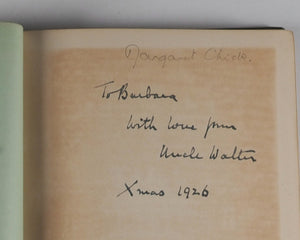 Margaret
To Barbara
With love from
Uncle Walter
Xmas 1926